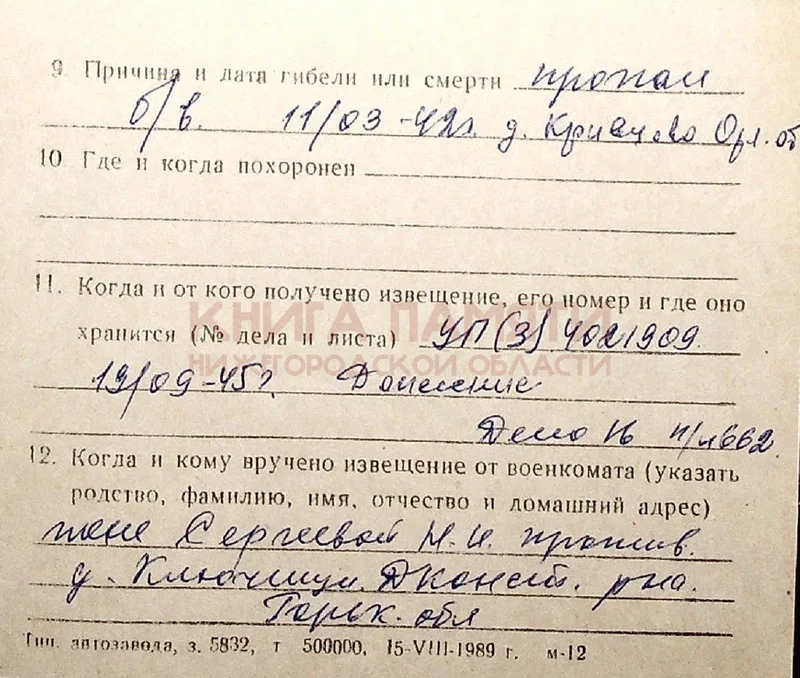 9. Причина и дата гибели или смерти пропал
б/в. 11/03-42г. д. Кривцово Орл. об
10. Где и когда похоронен
11. Когда и от кого получено извещение, его номер и где оно
КНИГА ПАМЯТИ
хранится (№ дела и листа) УП(3) 4021909.
НИЖЕГОРОДСКОЙ ОБЛАСТИ
19/09-45г. Донесение
Дело № н/л662.
12. Когда и кому вручено извещение от военкомата (указать
родство, фамилию, имя, отчество и домашний адрес)
жене Сергеевой Н. И. прожив.
д. Ключищи Дконст. р-на.
Горьк. обл
Тип. автозавода, з. 5832, т 500000, 15-VIII-1989 г. м-12